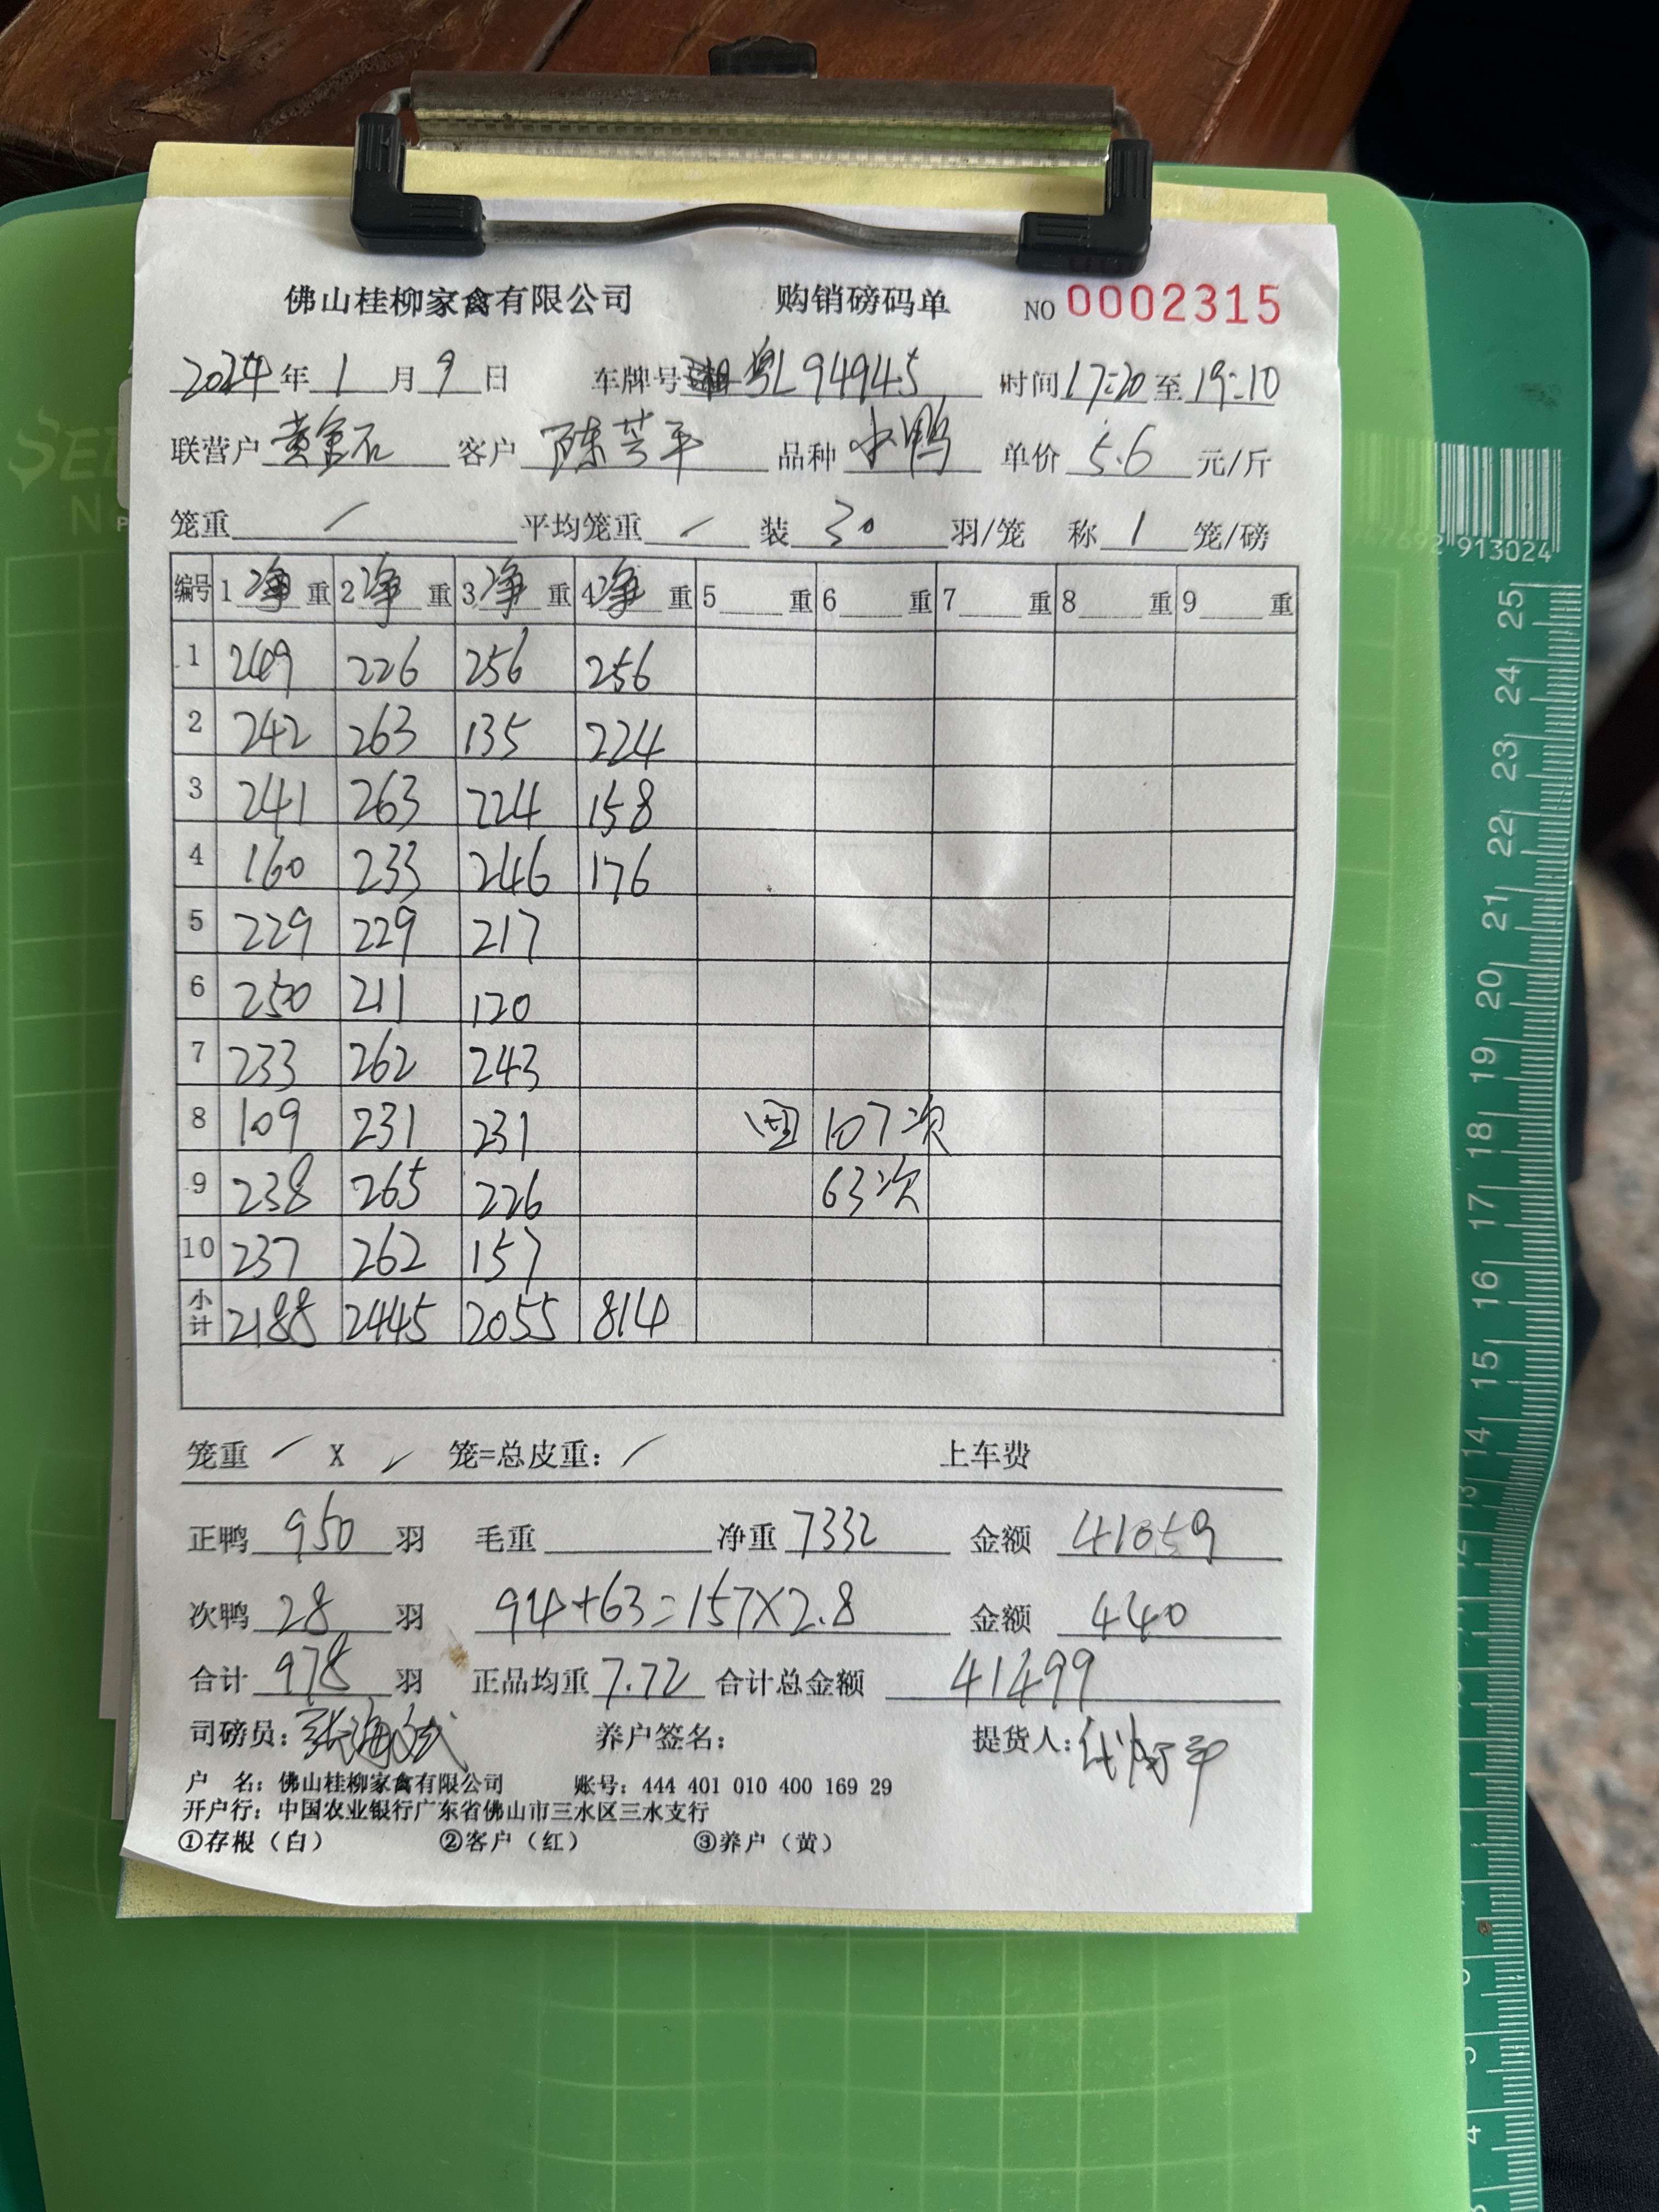 佛山桂柳家禽有限公司 购销磅码单 NO 0002315
2024年1月9日 车牌号 粤L94945 时间17:20至19:10
联营户 黄金石 客户 陈芳平 品种 水鸭 单价 5.6 元/斤
笼重 / 平均笼重 / 装 30 羽/笼 称 1 笼/磅
编号 1净重 2净重 3净重 4净重 5 重 6 重 7 重 8 重 9 重
1 249 226 256 256
2 242 263 135 224
3 241 263 224 158
4 160 233 246 176
5 229 229 217
6 250 211 120
7 233 262 243
8 109 231 231 107次
9 238 265 226 63次
10 237 262 157
小计 2188 2445 2055 814
笼重 / X / 笼=总皮重: / 上车费
正鸭 950 羽 毛重 净重 7332 金额 41059
次鸭 28 羽 94+63=157×2.8 金额 440
合计 978 羽 正品均重 7.72 合计总金额 41499
司磅员: 养户签名: 提货人:
户 名: 佛山桂柳家禽有限公司 账号: 444 401 010 400 169 29
开户行: 中国农业银行广东省佛山市三水区三水支行
①存根（白） ②客户（红） ③养户（黄）
SEE
N
913024
25
24
23
22
21
20
19
18
17
16
15
14
13
12
5
4
3